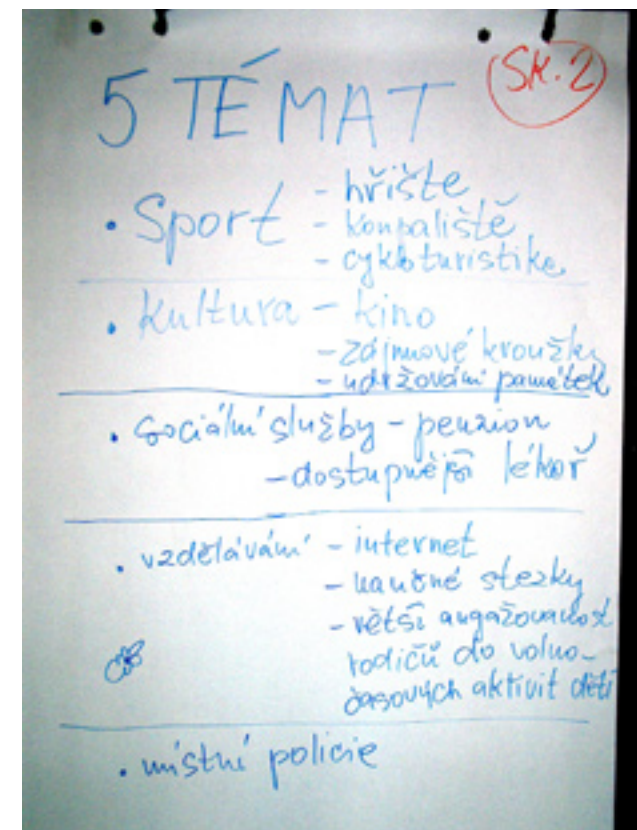 5 TÉMAT
SK. 2
• Sport - hřište
- koupaliště
- cykloturistike
• kultura - kino
- zájmové kroužky
- udržování památek
• sociální služby - penzion
- dostupnější lékař
• vzdělávání - internet
- naučné stezky
- větší angažovanost
rodičů do volno-
časových aktivit dětí
• místní policie